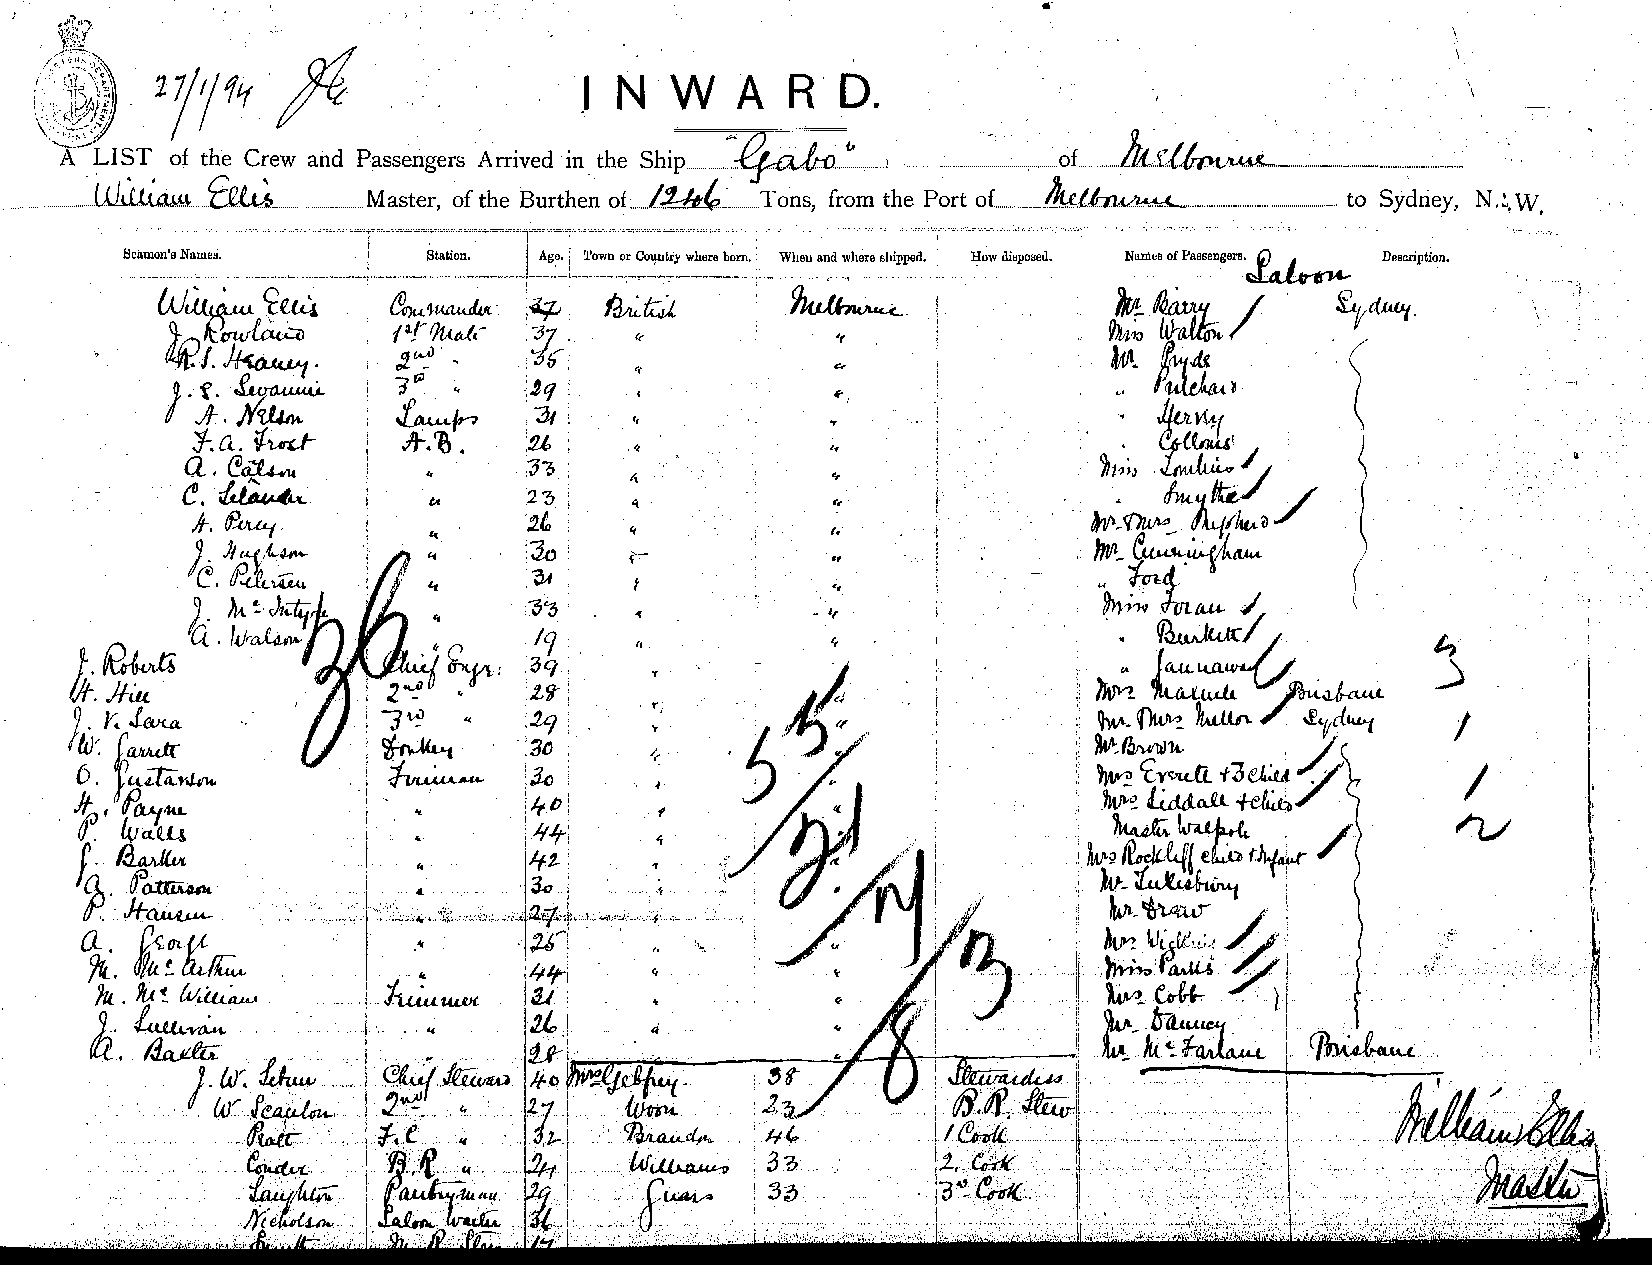 27/1/94
INWARD.
A LIST of the Crew and Passengers Arrived in the Ship "Gabo" of Melbourne
William Ellis Master, of the Burthen of 1246 Tons, from the Port of Melbourne to Sydney, N.S.W.
Seamen's Names. Station. Age. Town or Country where born. When and where shipped. How disposed. Names of Passengers. Description.
Saloon
William Ellis Commander 37 British Melbourne Mr Barry Sydney.
J. Rowland 1st Mate 37 " " Miss Walton
R.S. Heaney. 2nd " 35 " " Mr Pryde
J. S. 3rd " 29 " " " Pritchard
A. Nelson Lamps 31 " " " Hervey
F. A. Frost A.B. 26 " " "
A. Catson " 33 " " Miss Tomkins
C. Selander " 23 " " " Smythe
H. Percy " 26 " " Mr & Mrs Shepherd
J. Hughson " 30 " " Mr Cunningham
C. Petersen " 31 " " " Ford
J. McIntyre " 33 " " Miss Foran
A. Watson " 19 " " " Burkitt
36
J. Roberts Chief Engr. 39 " " "
H. Hill 2nd " 28 " " Mrs Brisbane 3
J. V. Sara 3rd " 29 " " Mr Mrs Mellor Sydney 1
W. Garrett Donkey 30 " " Mr Brown
O. Gustavson Fireman 30 " " Mrs Everett + 3 child 1
H. Payne " 40 " " Mrs Liddall + child
P. Walls " 44 " " Master Walpole 2
G. Barker " 42 " " Mrs Rockliff child + Infant
A. Patterson " 30 " " Mr
P. Hansen " 27 " " Mr Draw
A. George " 25 " " Mrs
M. McArthur " 44 " " Miss Parks
M. McWilliam Trimmer 31 " " Mrs Cobb
J. Sullivan " 26 " " Mr
A. Baxter " 28 " Mr McFarlane Brisbane
J. W. Chief Steward 40 Mrs 38 Stewardess
W Scanlon 2nd " 27 Woon 23 B.R. Stew
Pratt F.C " 32 Brandon 46 1 Cook
Conder B.R " 24 Williams 33 2. Cook
Laughton Pantryman 29 33 3rd Cook
Nicholson Saloon Waiter 36
William Ellis
Master